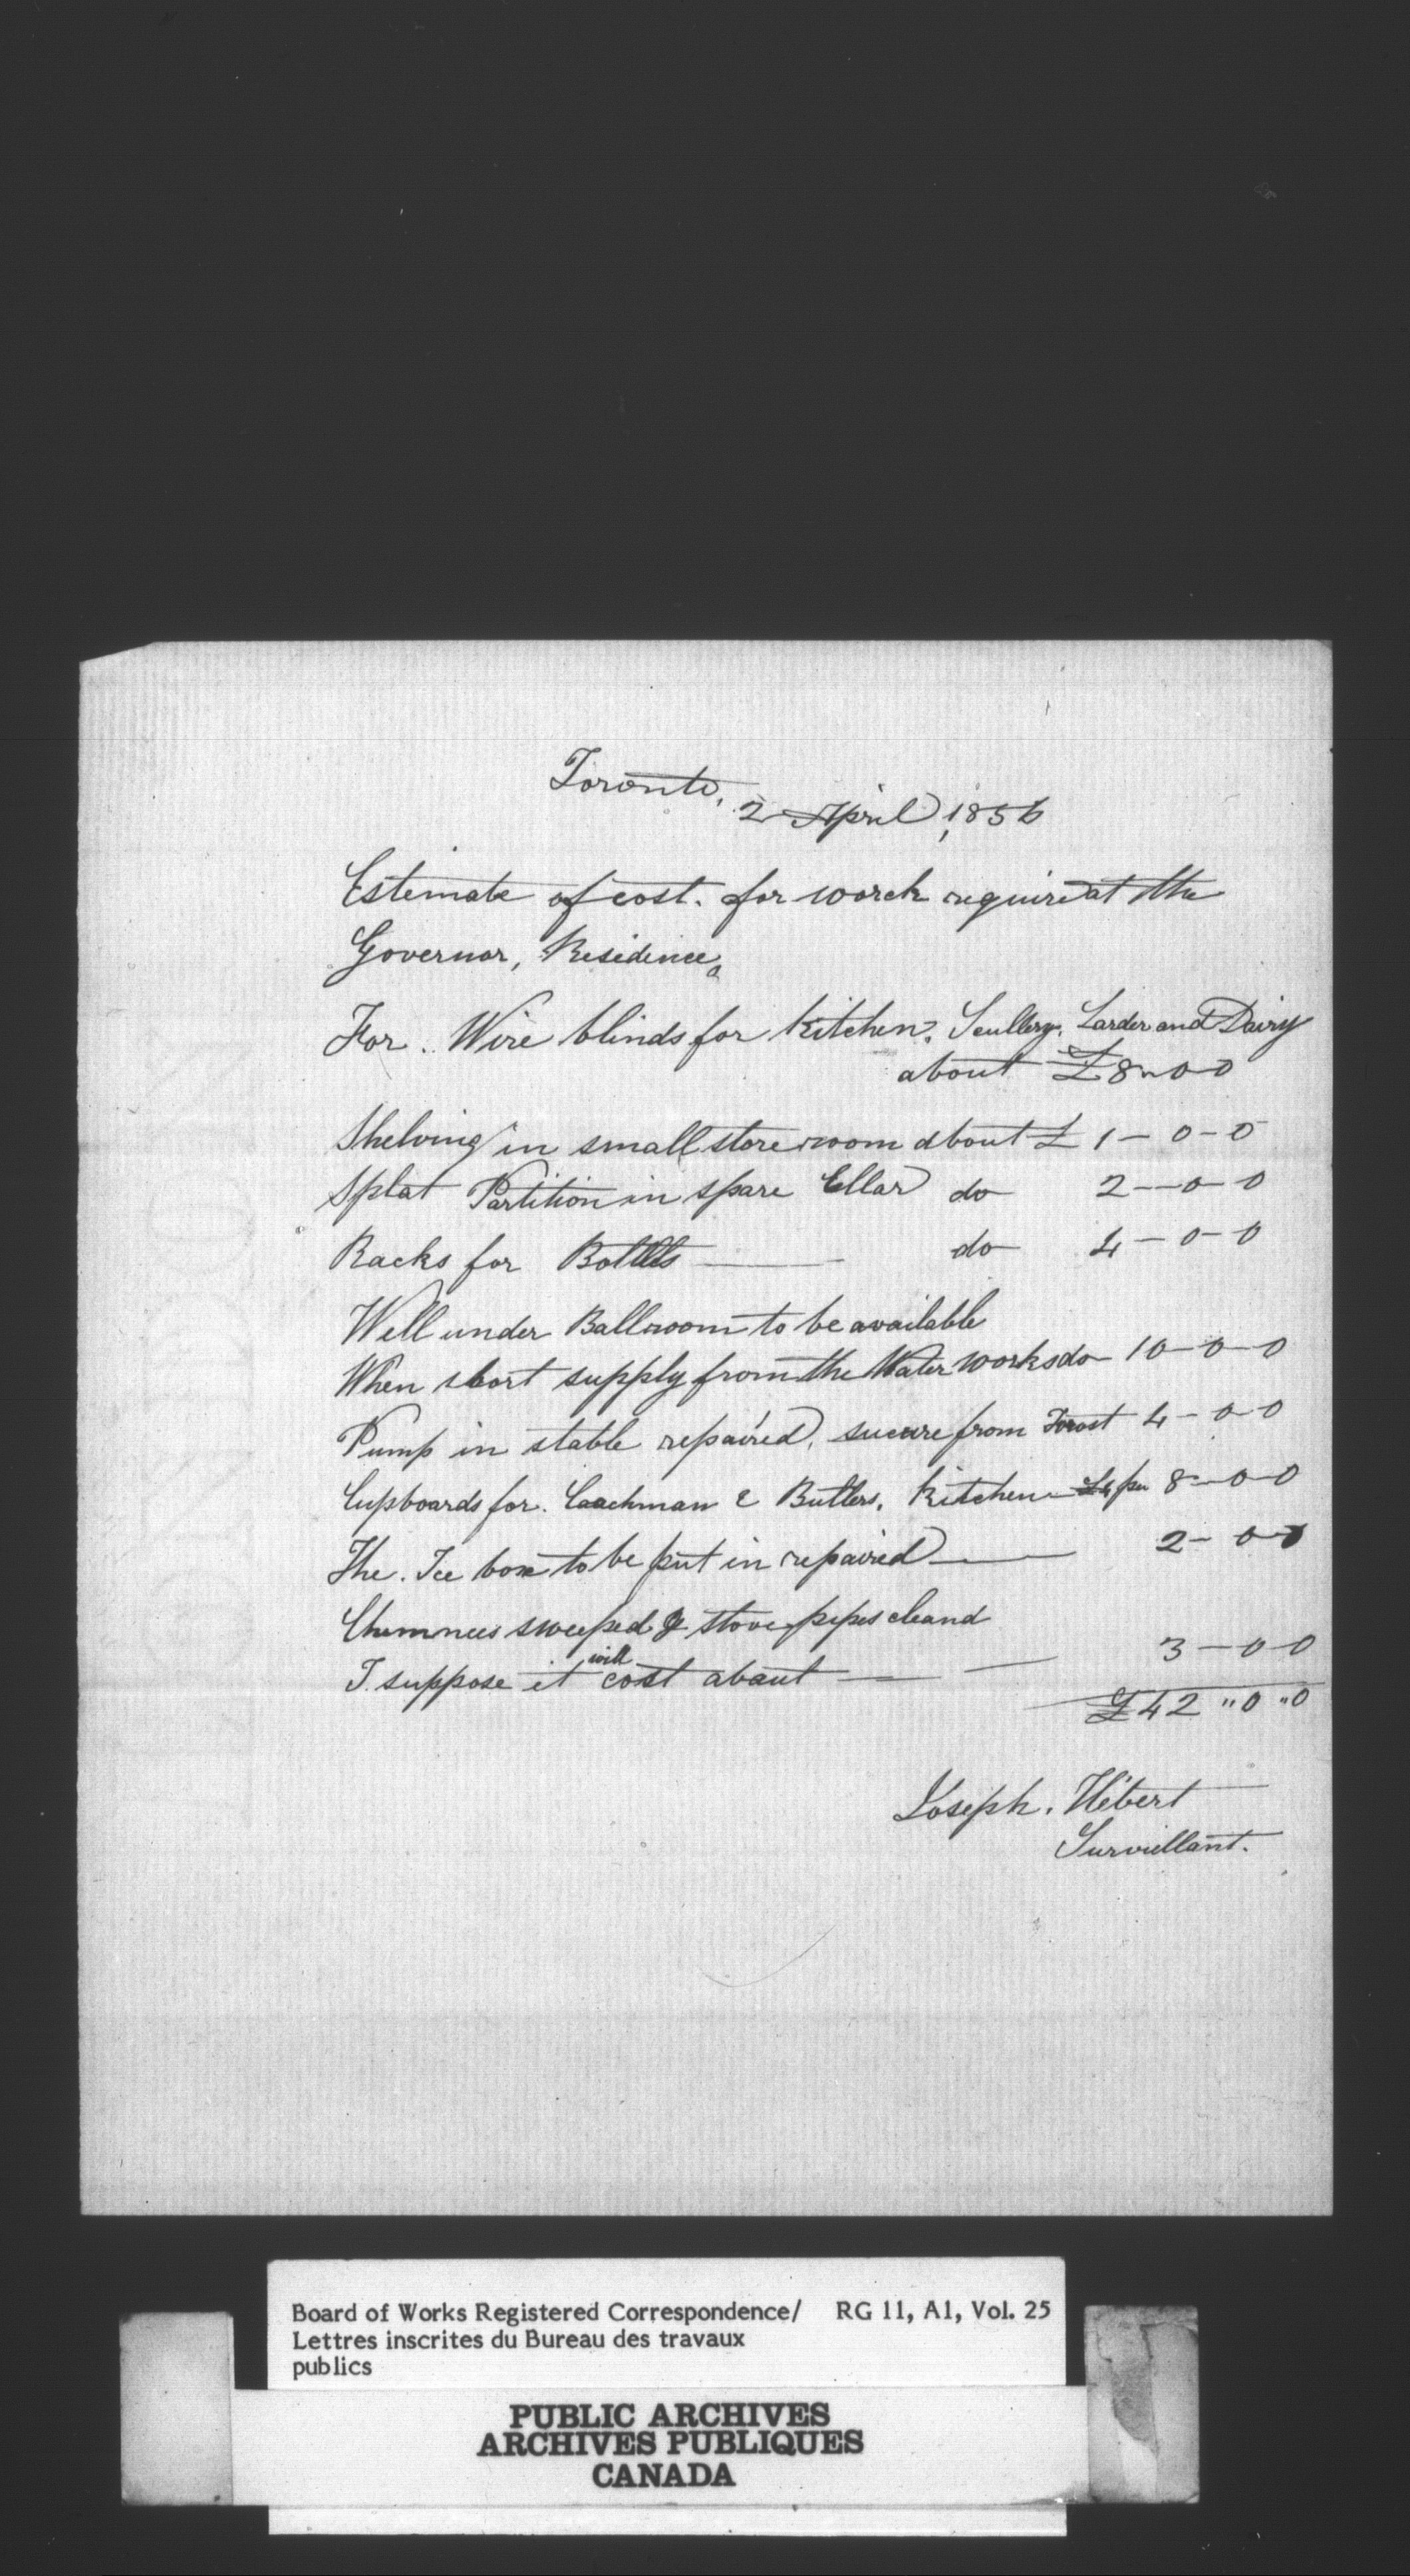 Toronto, 2 April, 1856
Estemate of cost. for worck require at the
Governor, Residence,
For.. Wire blinds for Kitchen, Scullery, Larder and Dairy
about £8-0-0
Shelving in small store room about £ 1-0-0
Splat Partition in spare Cellar do 2-0-0
Racks for Bottles do 4-0-0
Well under Ballroom to be available
When short supply from the Water works do 10-0-0
Pump in stable repaired, sucure from Frost 4-0-0
Cupboards for. Coachman & Butlers, Kitchen £4 per 8-0-0
The. Ice box to be put in repaired 2-0-0
Chemnees sweeped & stove pipes cleand
I. suppose it will cost about 3-0-0
£42 "0 "0
Joseph. Hébert
Survillant.
Board of Works Registered Correspondence/ RG 11, A1, Vol. 25
Lettres inscrites du Bureau des travaux
publics
PUBLIC ARCHIVES
ARCHIVES PUBLIQUES
CANADA